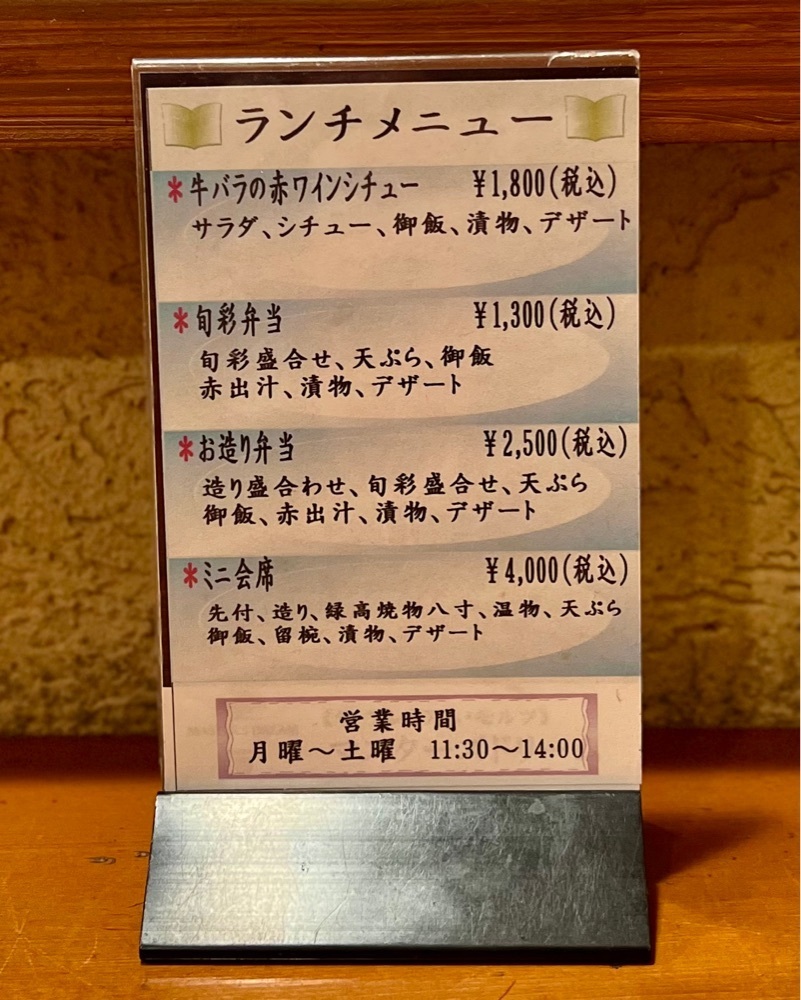 ランチメニュー
*牛バラの赤ワインシチュー ¥1,800(税込)
サラダ、シチュー、御飯、漬物、デザート
*旬彩弁当 ¥1,300(税込)
旬彩盛合せ、天ぷら、御飯
赤出汁、漬物、デザート
*お造り弁当 ¥2,500(税込)
造り盛合わせ、旬彩盛合せ、天ぷら
御飯、赤出汁、漬物、デザート
*ミニ会席 ¥4,000(税込)
先付、造り、縁高焼物八寸、温物、天ぷら
御飯、留椀、漬物、デザート
営業時間
月曜～土曜 11:30～14:00